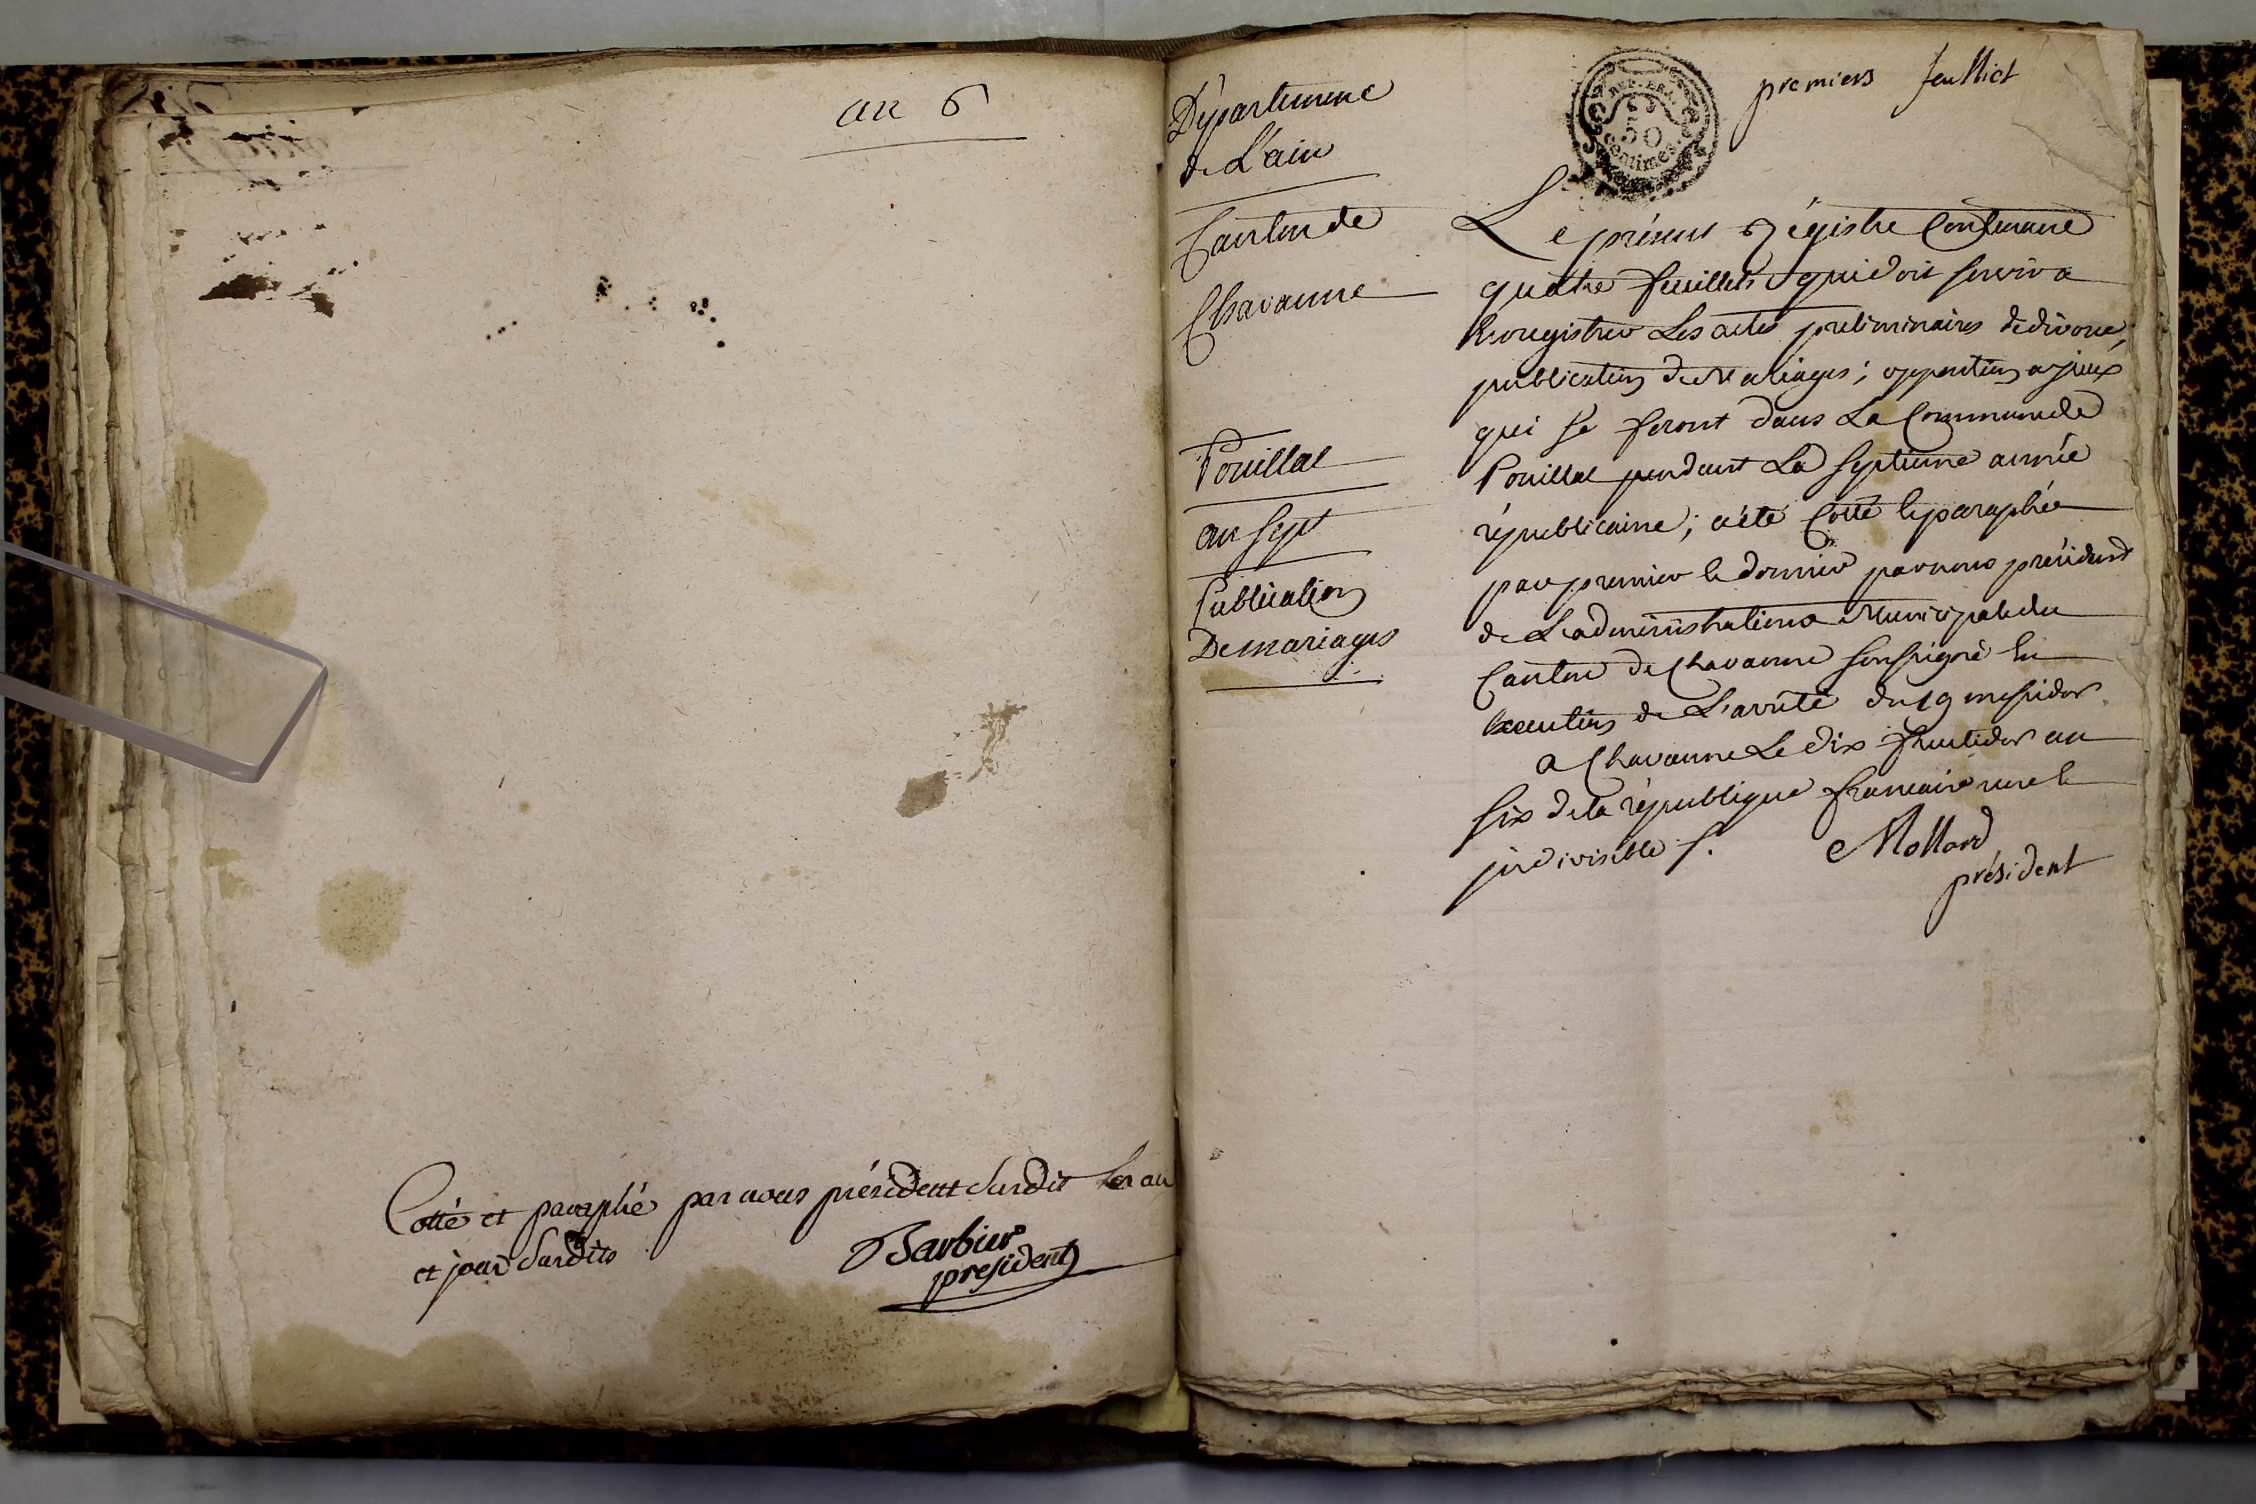 an 6
Cotté et paraphé par nous président susdit les an
et jour susdits
Barbier
president
Département
de L'ain
Canton de
Chavanne
Pouillat
an sept
Publication
De mariages
premiers feulliet
REP. FRA.
50
Centimes
Le présent Régistre Contenant
quatre feuillets qui doit servir a
Enregistrer Les actes preliminaires de divorce,
publication de Mariages; opposition a jceux
qui se feront dans La Commune de
Pouillat pendant La septieme année
républicaine; a été Cotté & paraphée
par premier & dernier par nous président
de L'administration Municipale du
Canton de Chavanne soussigné En
Execution de L'arrêté du 19 messidor.
a Chavanne Le dix fructidor an
six de la république francaise une &
jndivisible
Mollard
président